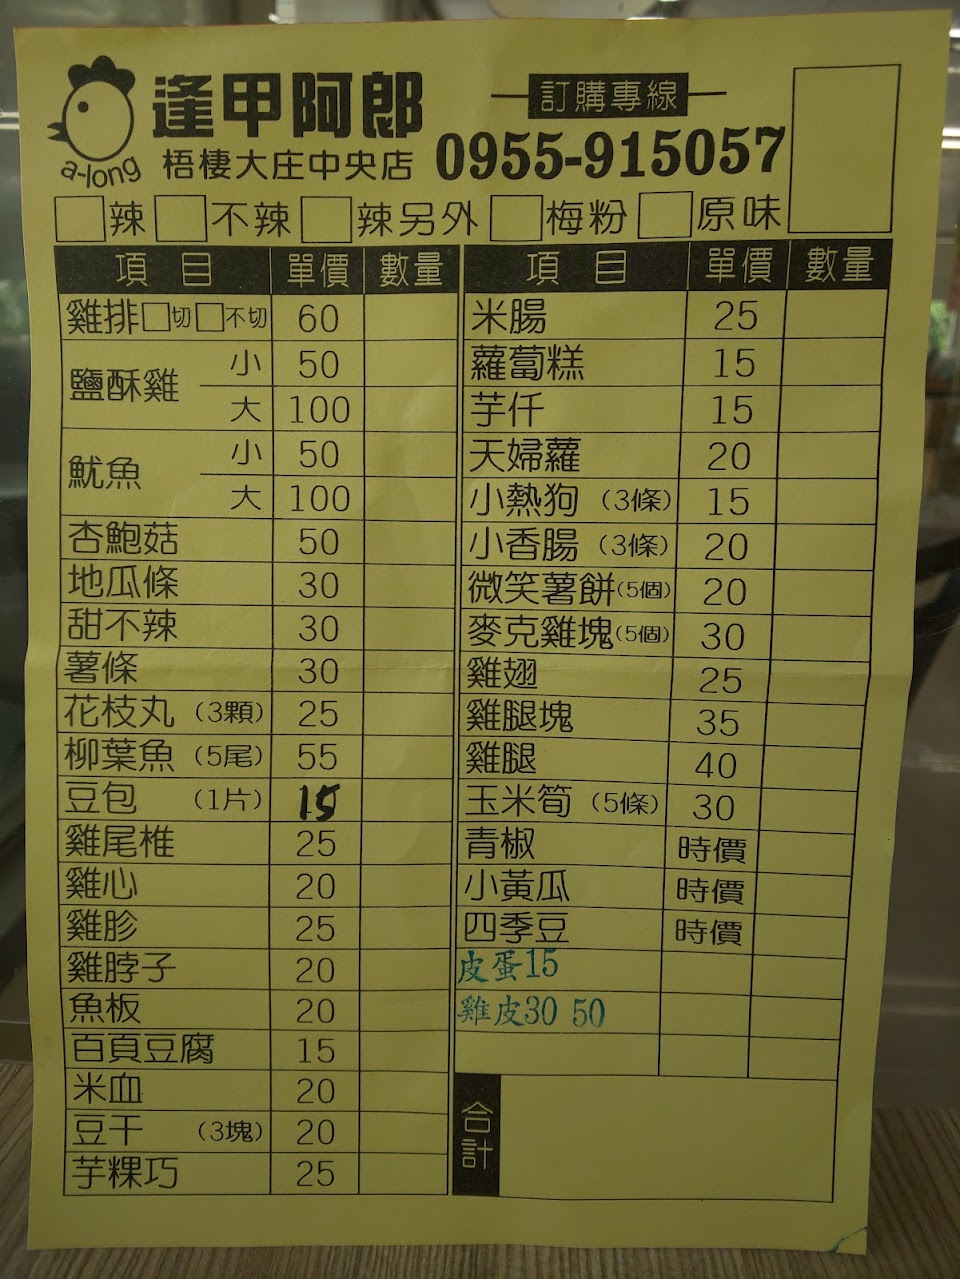 逢甲阿郎
a-long
梧棲大庄中央店
訂購專線
0955-915057
□辣 □不辣 □辣另外 □梅粉 □原味
項目 單價 數量
雞排□切□不切 60
鹽酥雞 小 50
大 100
魷魚 小 50
大 100
杏鮑菇 50
地瓜條 30
甜不辣 30
薯條 30
花枝丸 (3顆) 25
柳葉魚 (5尾) 55
豆包 (1片) 15
雞尾椎 25
雞心 20
雞胗 25
雞脖子 20
魚板 20
百頁豆腐 15
米血 20
豆干 (3塊) 20
芋粿巧 25
項目 單價 數量
米腸 25
蘿蔔糕 15
芋仟 15
天婦蘿 20
小熱狗 (3條) 15
小香腸 (3條) 20
微笑薯餅(5個) 20
麥克雞塊(5個) 30
雞翅 25
雞腿塊 35
雞腿 40
玉米筍 (5條) 30
青椒 時價
小黃瓜 時價
四季豆 時價
皮蛋15
雞皮30 50
合計